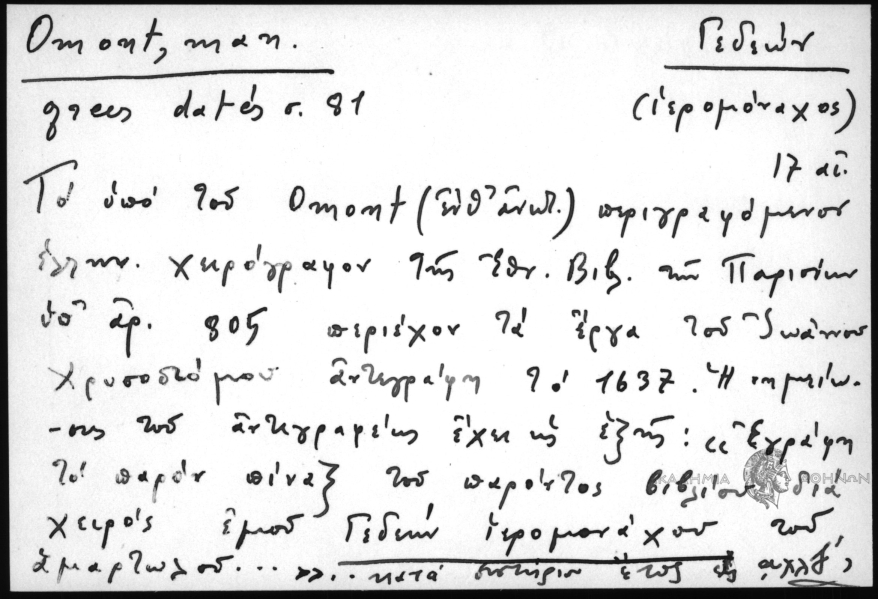 Omont, man. Γεδεών
grecs datés σ. 81 (ἱερομόναχος)
17 αἰ.
Τό ὑπό τοῦ Omont (ἔνθ' ἀνωτ.) περιγραφόμενον
ἑλλην. χειρόγραφον τῆς Ἐθν. Βιβλ. τῶν Παρισίων
ὑπ' ἀρ. 805 περιέχον τά ἔργα τοῦ Ἰωάννου
Χρυσοστόμου ἀντεγράφη τό 1637. Ἡ σημείω-
-σις τοῦ ἀντιγραφέως ἔχει ὡς ἑξῆς: «Ἐγράφη
τό παρόν πίναξ τοῦ παρόντος βιβλίου διά
ΑΚΑΔΗΜΙΑ ΑΘΗΝΩΝ
χειρός ἐμοῦ Γεδεών ἱερομονάχου τοῦ
ἁμαρτωλοῦ... »... κατά σωτήριον ἔτος